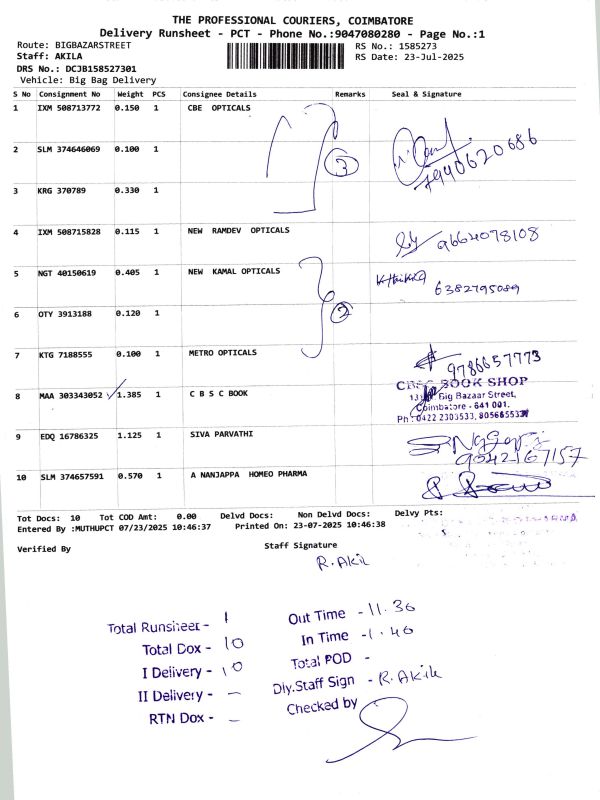 THE PROFESSIONAL COURIERS, COIMBATORE
Delivery Runsheet - PCT - Phone No.:9047080280 - Page No.:1
Route: BIGBAZARSTREET RS No.: 1585273
Staff: AKILA RS Date: 23-Jul-2025
DRS No.: DCJB158527301
Vehicle: Big Bag Delivery
S No Consignment No Weight PCS Consignee Details Remarks Seal & Signature
1 IXM 508713772 0.150 1 CBE OPTICALS
7940620686
2 SLM 374646069 0.100 1 3
3 KRG 370789 0.330 1
4 IXM 508715828 0.115 1 NEW RAMDEV OPTICALS 9664078108
5 NGT 40150619 0.405 1 NEW KAMAL OPTICALS
6382795089
6 OTY 3913188 0.120 1 2
7 KTG 7188555 0.100 1 METRO OPTICALS 9786657773
8 MAA 303343052 ✓ 1.385 1 C B S C BOOK
CBSC BOOK SHOP
Big Bazaar Street,
Coimbatore - 641 001.
Ph : 0422 2303533,
9 EDQ 16786325 1.125 1 SIVA PARVATHI
9042167157
10 SLM 374657591 0.570 1 A NANJAPPA HOMEO PHARMA
Tot Docs: 10 Tot COD Amt: 0.00 Delvd Docs: Non Delvd Docs: Delvy Pts:
Entered By :MUTHUPCT 07/23/2025 10:46:37 Printed On: 23-07-2025 10:46:38
Verified By Staff Signature
R. Akil
Total Runsheet - 1 Out Time - 11.36
Total Dox - 10 In Time - 1.40
I Delivery - 10 Total POD -
II Delivery - – Dly.Staff Sign - R. Akil
RTN Dox - – Checked by